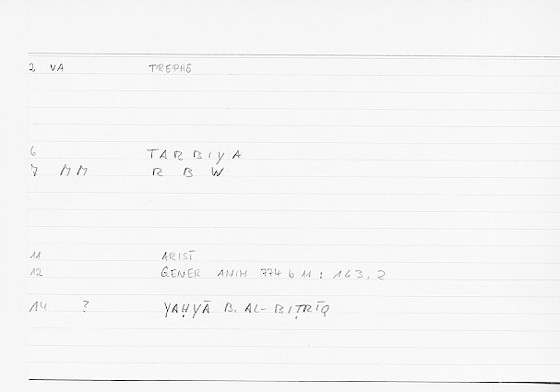 2 VA TREPHŌ
6 TARBIYA
7 MM R B W
11 ARIST
12 GENER ANIM 774 b 11 : 163.2
14 ? YAḤYĀ B. AL-BIṬRĪQ